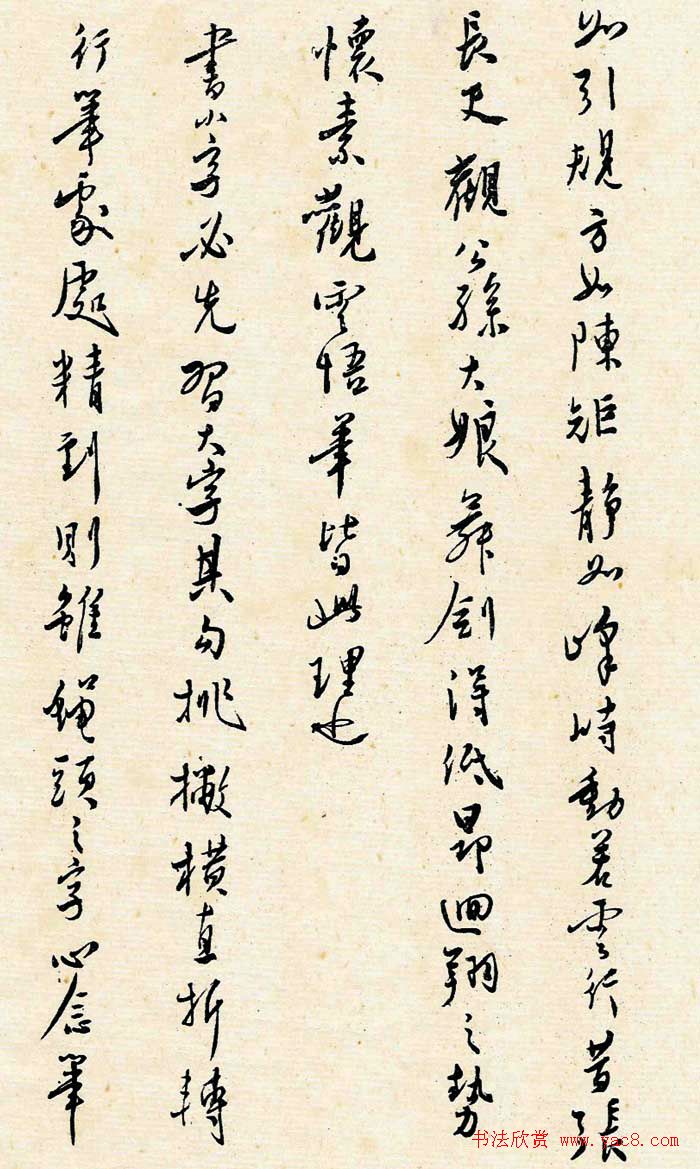 如引規方如陳矩靜如峰峙動若雲行昔張
長史觀公孫大娘舞劍得低昂迴翔之勢
懷素觀雲悟筆皆此理也
書小字必先習大字其勾挑撇橫直折轉
行筆處處精到則雖蠅頭之字心念筆
书法欣赏 www.yac8.com